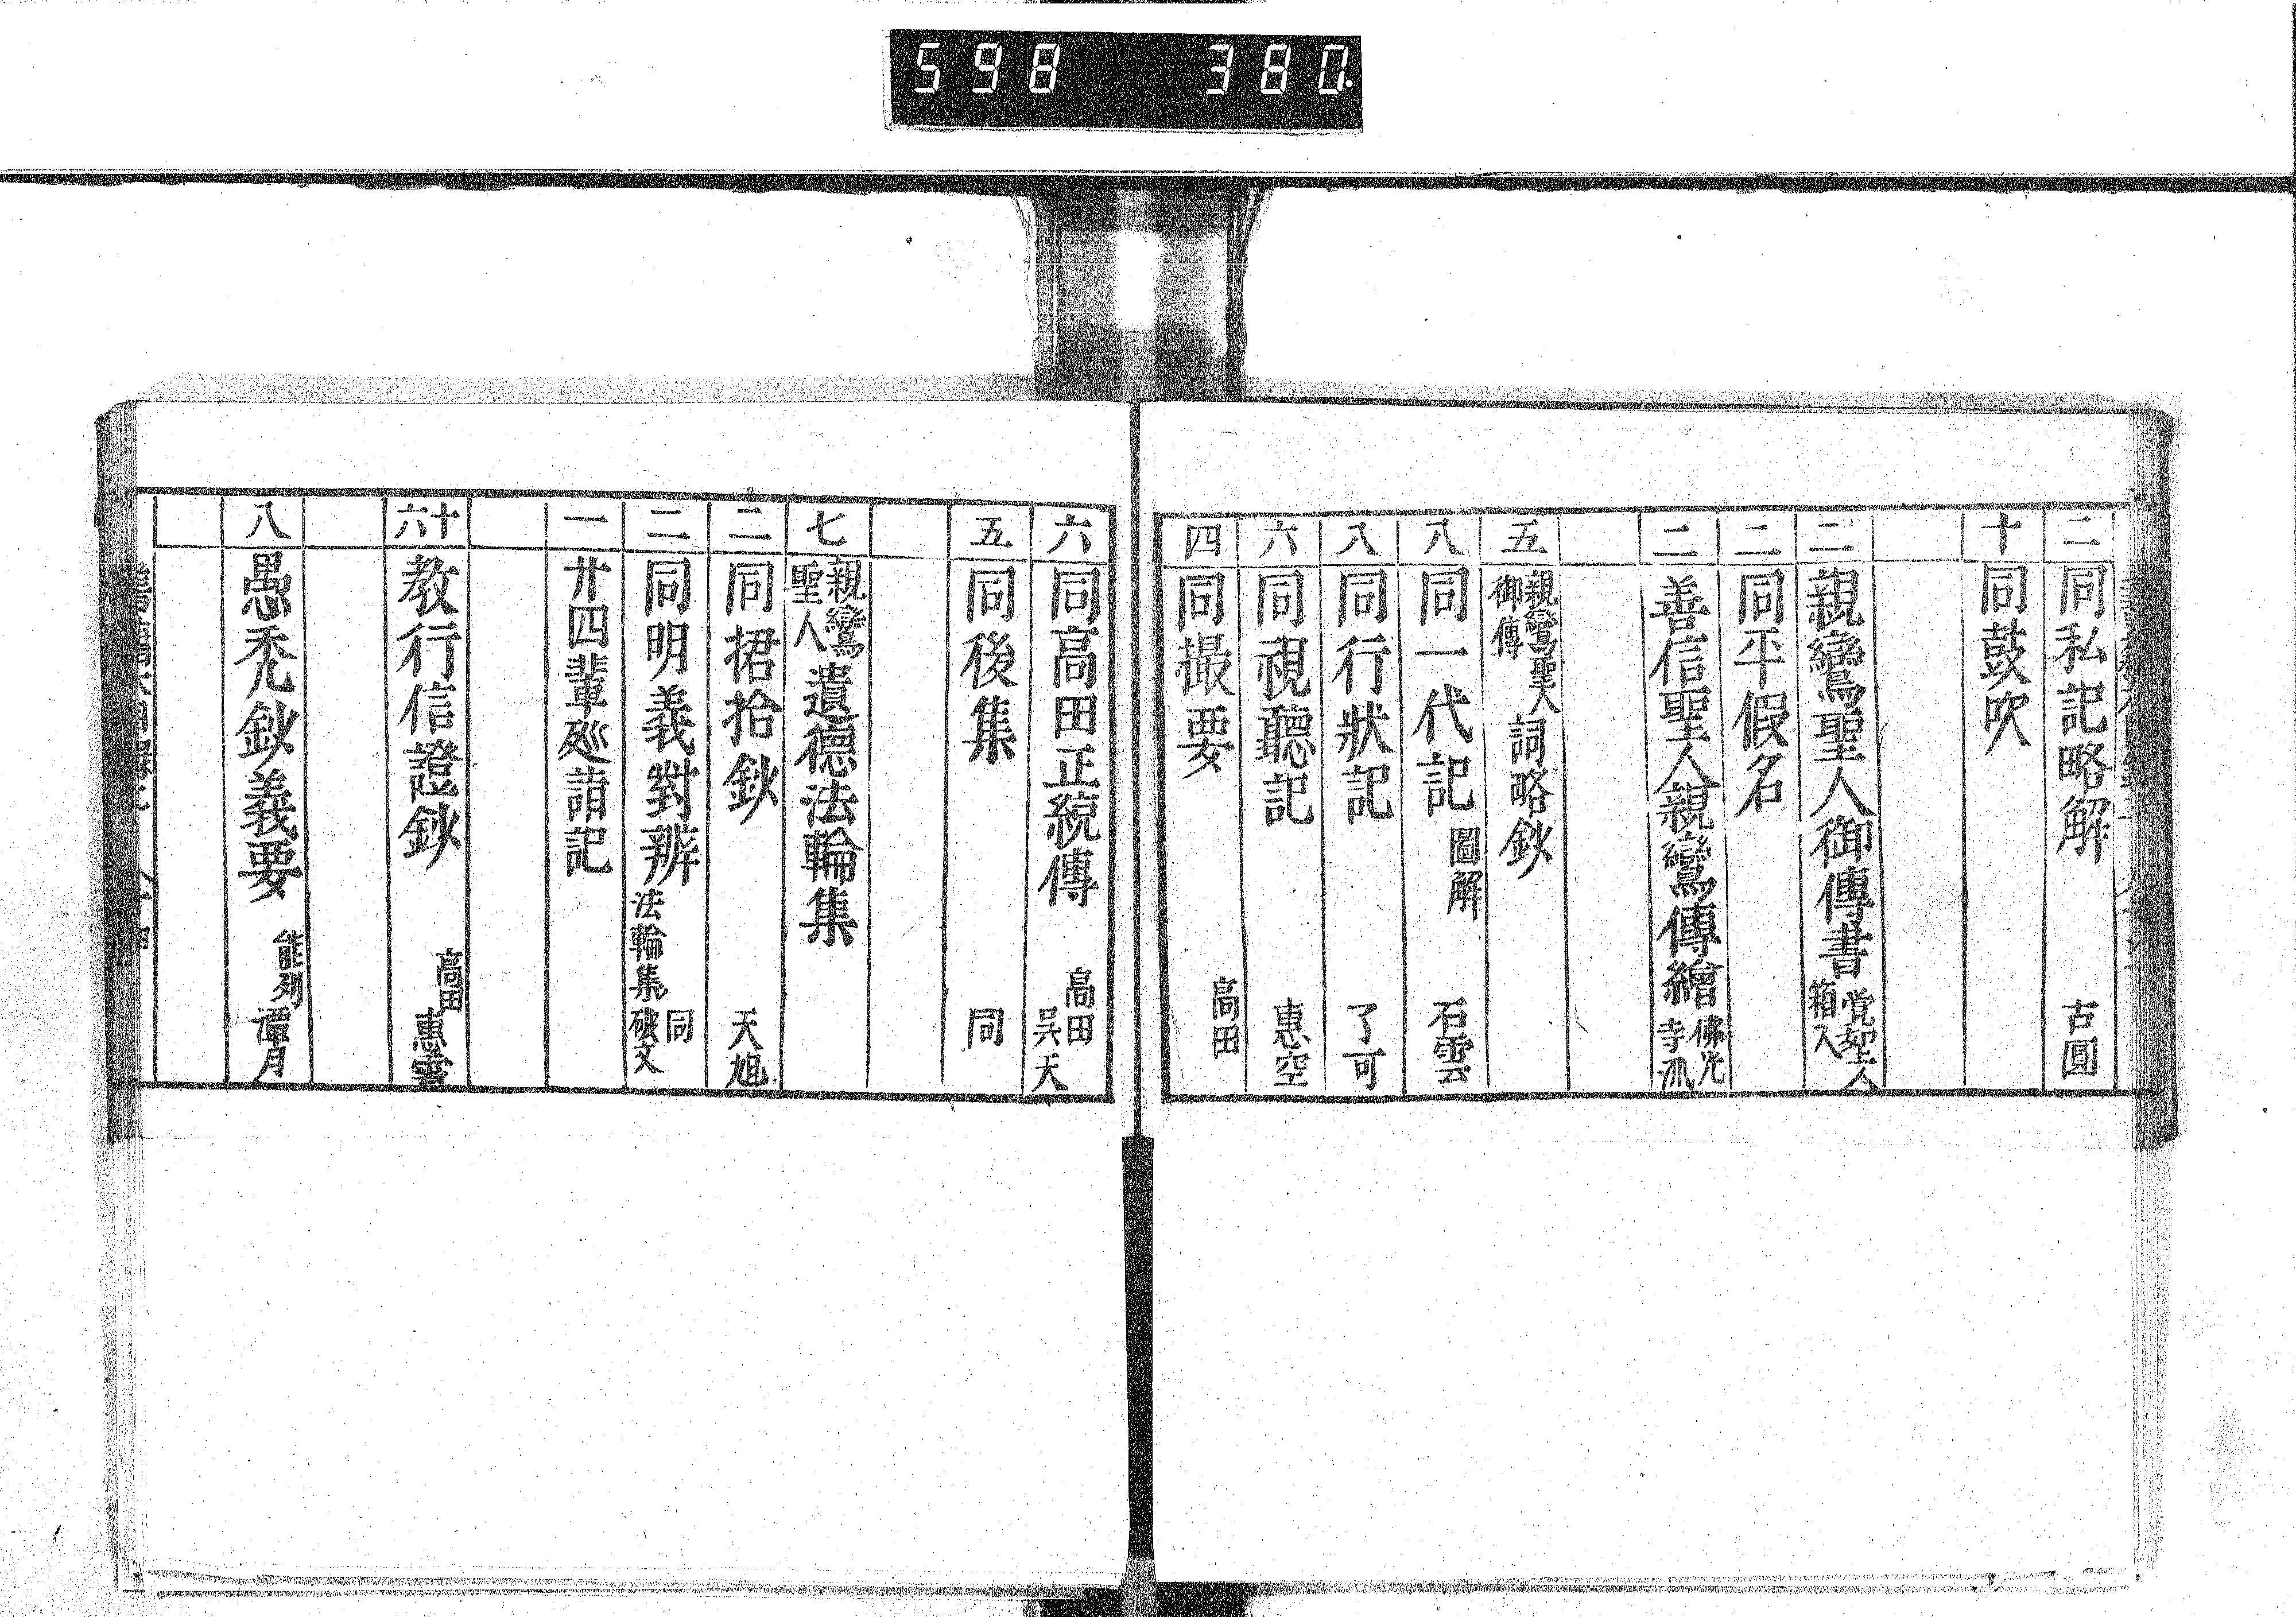 598 380.
二 同私記略解 古圓
十 同鼓吹
二 親鸞聖人御傳書 覚如上人 箱入
二 同平假名
二 善信聖人親鸞傳繪 佛光寺派
五 親鸞聖人御傳 詞略鈔
八 同一代記 圖解 石雲
八 同行狀記 了可
六 同視聽記 惠空
四 同撮要 高田
六 同高田正統傳 高田 呉天
五 同後集 同
七 親鸞聖人 遺德法輪集
二 同捃拾鈔 天旭
二 同明義對辨 法輪集 同 破文
一 廿四輩廵詣記
十六 教行信證鈔 高田 惠雲
八 愚禿鈔義要 能列